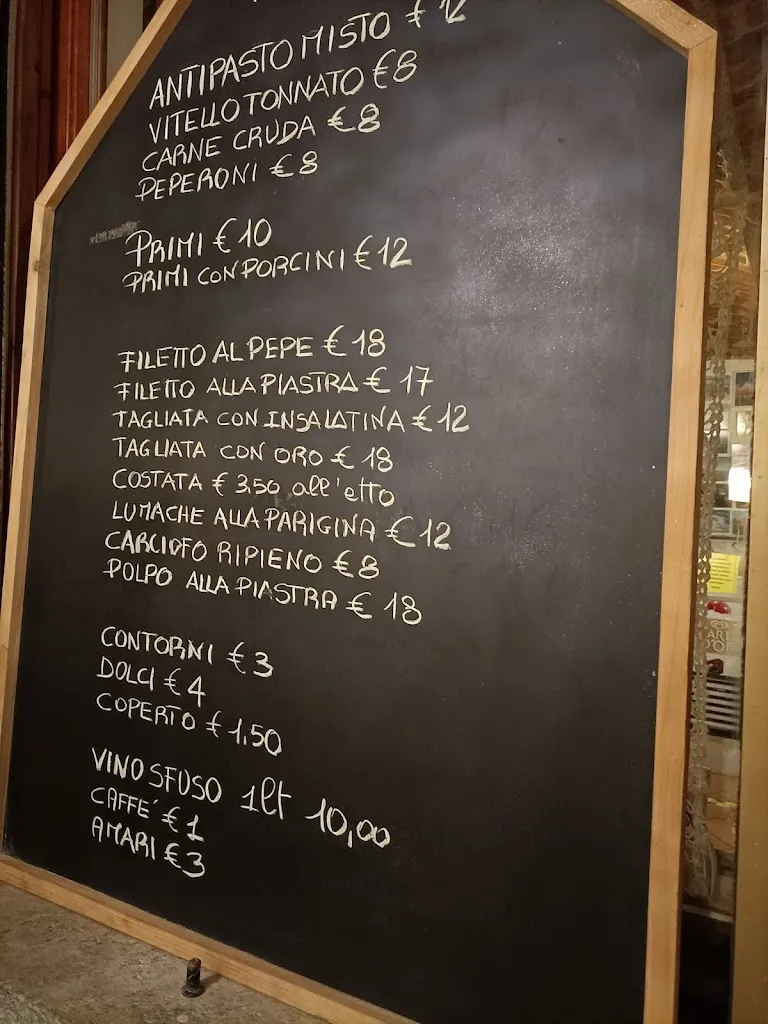 ANTIPASTO MISTO € 12
VITELLO TONNATO € 8
CARNE CRUDA € 8
PEPERONI € 8
PRIMI € 10
PRIMI CON PORCINI € 12
FILETTO AL PEPE € 18
FILETTO ALLA PIASTRA € 17
TAGLIATA CON INSALATINA € 12
TAGLIATA CON ORO € 18
COSTATA € 3.50 all'etto
LUMACHE ALLA PARIGINA € 12
CARCIOFO RIPIENO € 8
POLPO ALLA PIASTRA € 18
CONTORNI € 3
DOLCI € 4
COPERTO € 1.50
VINO SFUSO 1lt 10,00
CAFFE' € 1
AMARI € 3
ART
D'OR